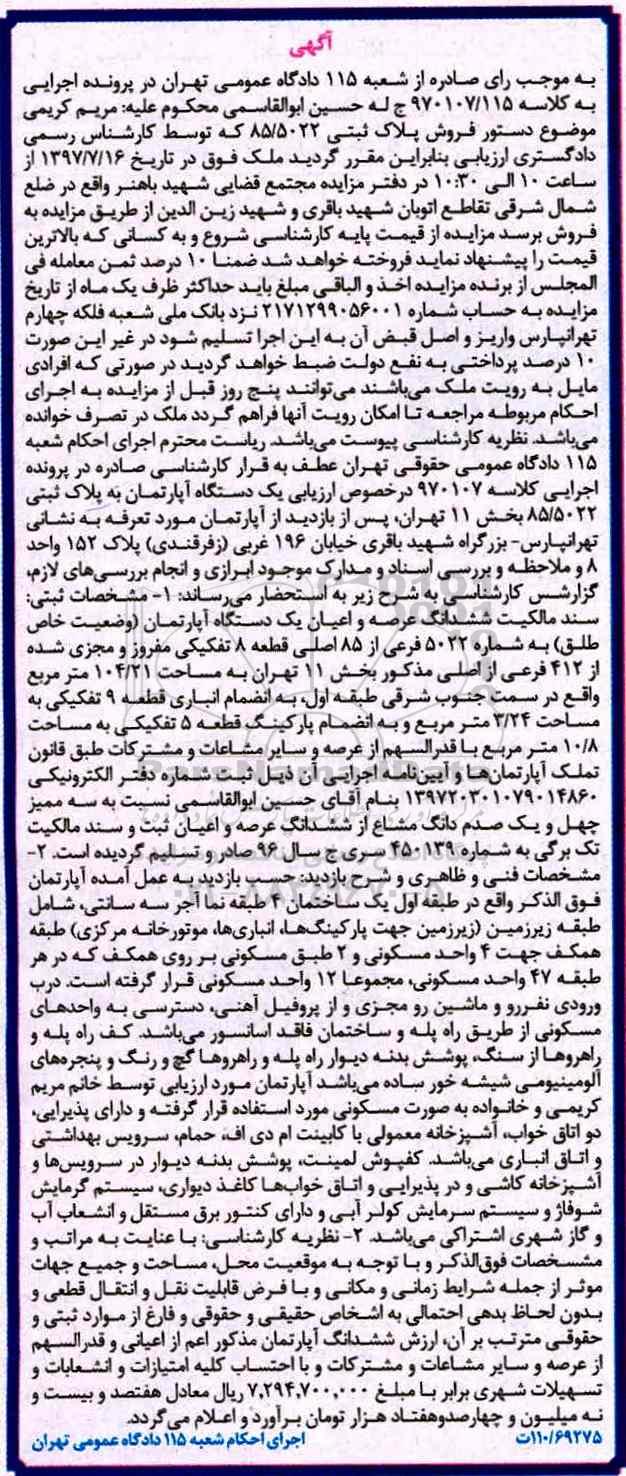 آگهی
به موجب رای صادره از شعبه ۱۱۵ دادگاه عمومی تهران در پرونده اجرایی
به کلاسه ۹۷۰۱۰۷/۱۱۵ ج له حسین ابوالقاسمی محکوم علیه: مریم کریمی
موضوع دستور فروش پلاک ثبتی ۸۵/۵۰۲۲ که توسط کارشناس رسمی
دادگستری ارزیابی بنابراین مقرر گردید ملک فوق در تاریخ ۱۳۹۷/۷/۱۶ از
ساعت ۱۰ الی ۱۰:۳۰ در دفتر مزایده مجتمع قضایی شهید باهنر واقع در ضلع
شمال شرقی تقاطع اتوبان شهید باقری و شهید زین الدین از طریق مزایده به
فروش برسد مزایده از قیمت پایه کارشناسی شروع و به کسانی که بالاترین
قیمت را پیشنهاد نماید فروخته خواهد شد ضمنا ۱۰ درصد ثمن معامله فی
المجلس از برنده مزایده اخذ و الباقی مبلغ باید حداکثر ظرف یک ماه از تاریخ
مزایده به حساب شماره ۲۱۷۱۲۹۹۰۵۶۰۰۱ نزد بانک ملی شعبه فلکه چهارم
تهرانپارس واریز و اصل قبض آن به این اجرا تسلیم شود در غیر این صورت
۱۰ درصد پرداختی به نفع دولت ضبط خواهد گردید در صورتی که افرادی
مایل به رویت ملک می‌باشند می‌توانند پنج روز قبل از مزایده به اجرای
احکام مربوطه مراجعه تا امکان رویت آنها فراهم گردد ملک در تصرف خوانده
می‌باشد. نظریه کارشناسی پیوست می‌باشد. ریاست محترم اجرای احکام شعبه
۱۱۵ دادگاه عمومی حقوقی تهران عطف به قرار کارشناسی صادره در پرونده
اجرایی کلاسه ۹۷۰۱۰۷ درخصوص ارزیابی یک دستگاه آپارتمان به پلاک ثبتی
۸۵/۵۰۲۲ بخش ۱۱ تهران، پس از بازدید از آپارتمان مورد تعرفه به نشانی
تهرانپارس- بزرگراه شهید باقری خیابان ۱۹۶ غربی (زفرقندی) پلاک ۱۵۲ واحد
۸ و ملاحظه و بررسی اسناد و مدارک موجود ابرازی و انجام بررسی‌های لازم،
گزارش کارشناسی به شرح زیر به استحضار می‌رساند: ۱- مشخصات ثبتی:
سند مالکیت ششدانگ عرصه و اعیان یک دستگاه آپارتمان (وضعیت خاص
طلق) به شماره ۵۰۲۲ فرعی از ۸۵ اصلی قطعه ۸ تفکیکی مفروز و مجزی شده
از ۴۱۲ فرعی از اصلی مذکور بخش ۱۱ تهران به مساحت ۱۰۴/۲۱ متر مربع
واقع در سمت جنوب شرقی طبقه اول، به انضمام انباری قطعه ۹ تفکیکی به
مساحت ۳/۲۴ متر مربع و به انضمام پارکینگ قطعه ۵ تفکیکی به مساحت
۱۰/۸ متر مربع با قدرالسهم از عرصه و سایر مشاعات و مشترکات طبق قانون
تملک آپارتمان‌ها و آیین‌نامه اجرایی آن ذیل ثبت شماره دفتر الکترونیکی
۱۳۹۷۲۰۳۰۱۰۷۹۰۱۴۸۶۰ بنام آقای حسین ابوالقاسمی نسبت به سه ممیز
چهل و یک صدم دانگ مشاع از ششدانگ عرصه و اعیان ثبت و سند مالکیت
تک برگی به شماره ۴۵۰۱۳۹ سری ج سال ۹۶ صادر و تسلیم گردیده است. ۲-
مشخصات فنی و ظاهری و شرح بازدید: حسب بازدید به عمل آمده آپارتمان
فوق الذکر واقع در طبقه اول یک ساختمان ۴ طبقه نما آجر سه سانتی، شامل
طبقه زیرزمین (زیرزمین جهت پارکینگ‌ها، انباری‌ها، موتورخانه مرکزی) طبقه
همکف جهت ۴ واحد مسکونی و ۲ طبق مسکونی بر روی همکف که در هر
طبقه ۴۷ واحد مسکونی، مجموعا ۱۲ واحد مسکونی قرار گرفته است. درب
ورودی نفررو و ماشین رو مجزی و از پروفیل آهنی، دسترسی به واحدهای
مسکونی از طریق راه پله و ساختمان فاقد آسانسور می‌باشد. کف راه پله و
راهروها از سنگ، پوشش بدنه دیوار راه پله و راهروها گچ و رنگ و پنجره‌های
آلومینیومی شیشه خور ساده می‌باشد آپارتمان مورد ارزیابی توسط خانم مریم
کریمی و خانواده به صورت مسکونی مورد استفاده قرار گرفته و دارای پذیرایی،
دو اتاق خواب، آشپزخانه معمولی با کابینت ام دی اف، حمام، سرویس بهداشتی
و اتاق انباری می‌باشد. کفپوش لمینت، پوشش بدنه دیوار در سرویس‌ها و
آشپزخانه کاشی و در پذیرایی و اتاق خواب‌ها کاغذ دیواری، سیستم گرمایش
شوفاژ و سیستم سرمایش کولر آبی و دارای کنتور برق مستقل و انشعاب آب
و گاز شهری اشتراکی می‌باشد. ۲- نظریه کارشناسی: با عنایت به مراتب و
مشخصات فوق‌الذکر و با توجه به موقعیت محل، مساحت و جمیع جهات
موثر از جمله شرایط زمانی و مکانی و با فرض قابلیت نقل و انتقال قطعی و
بدون لحاظ بدهی احتمالی به اشخاص حقیقی و حقوقی و فارغ از موارد ثبتی و
حقوقی مترتب بر آن، ارزش ششدانگ آپارتمان مذکور اعم از اعیانی و قدرالسهم
از عرصه و سایر مشاعات و مشترکات و با احتساب کلیه امتیازات و انشعابات و
تسهیلات شهری برابر با مبلغ ۷,۲۹۴,۷۰۰,۰۰۰ ریال معادل هفتصد و بیست و
نه میلیون و چهارصدوهفتاد هزار تومان برآورد و اعلام می‌گردد.
۱۱۰/۶۹۲۷۵ت اجرای احکام شعبه ۱۱۵ دادگاه عمومی تهران